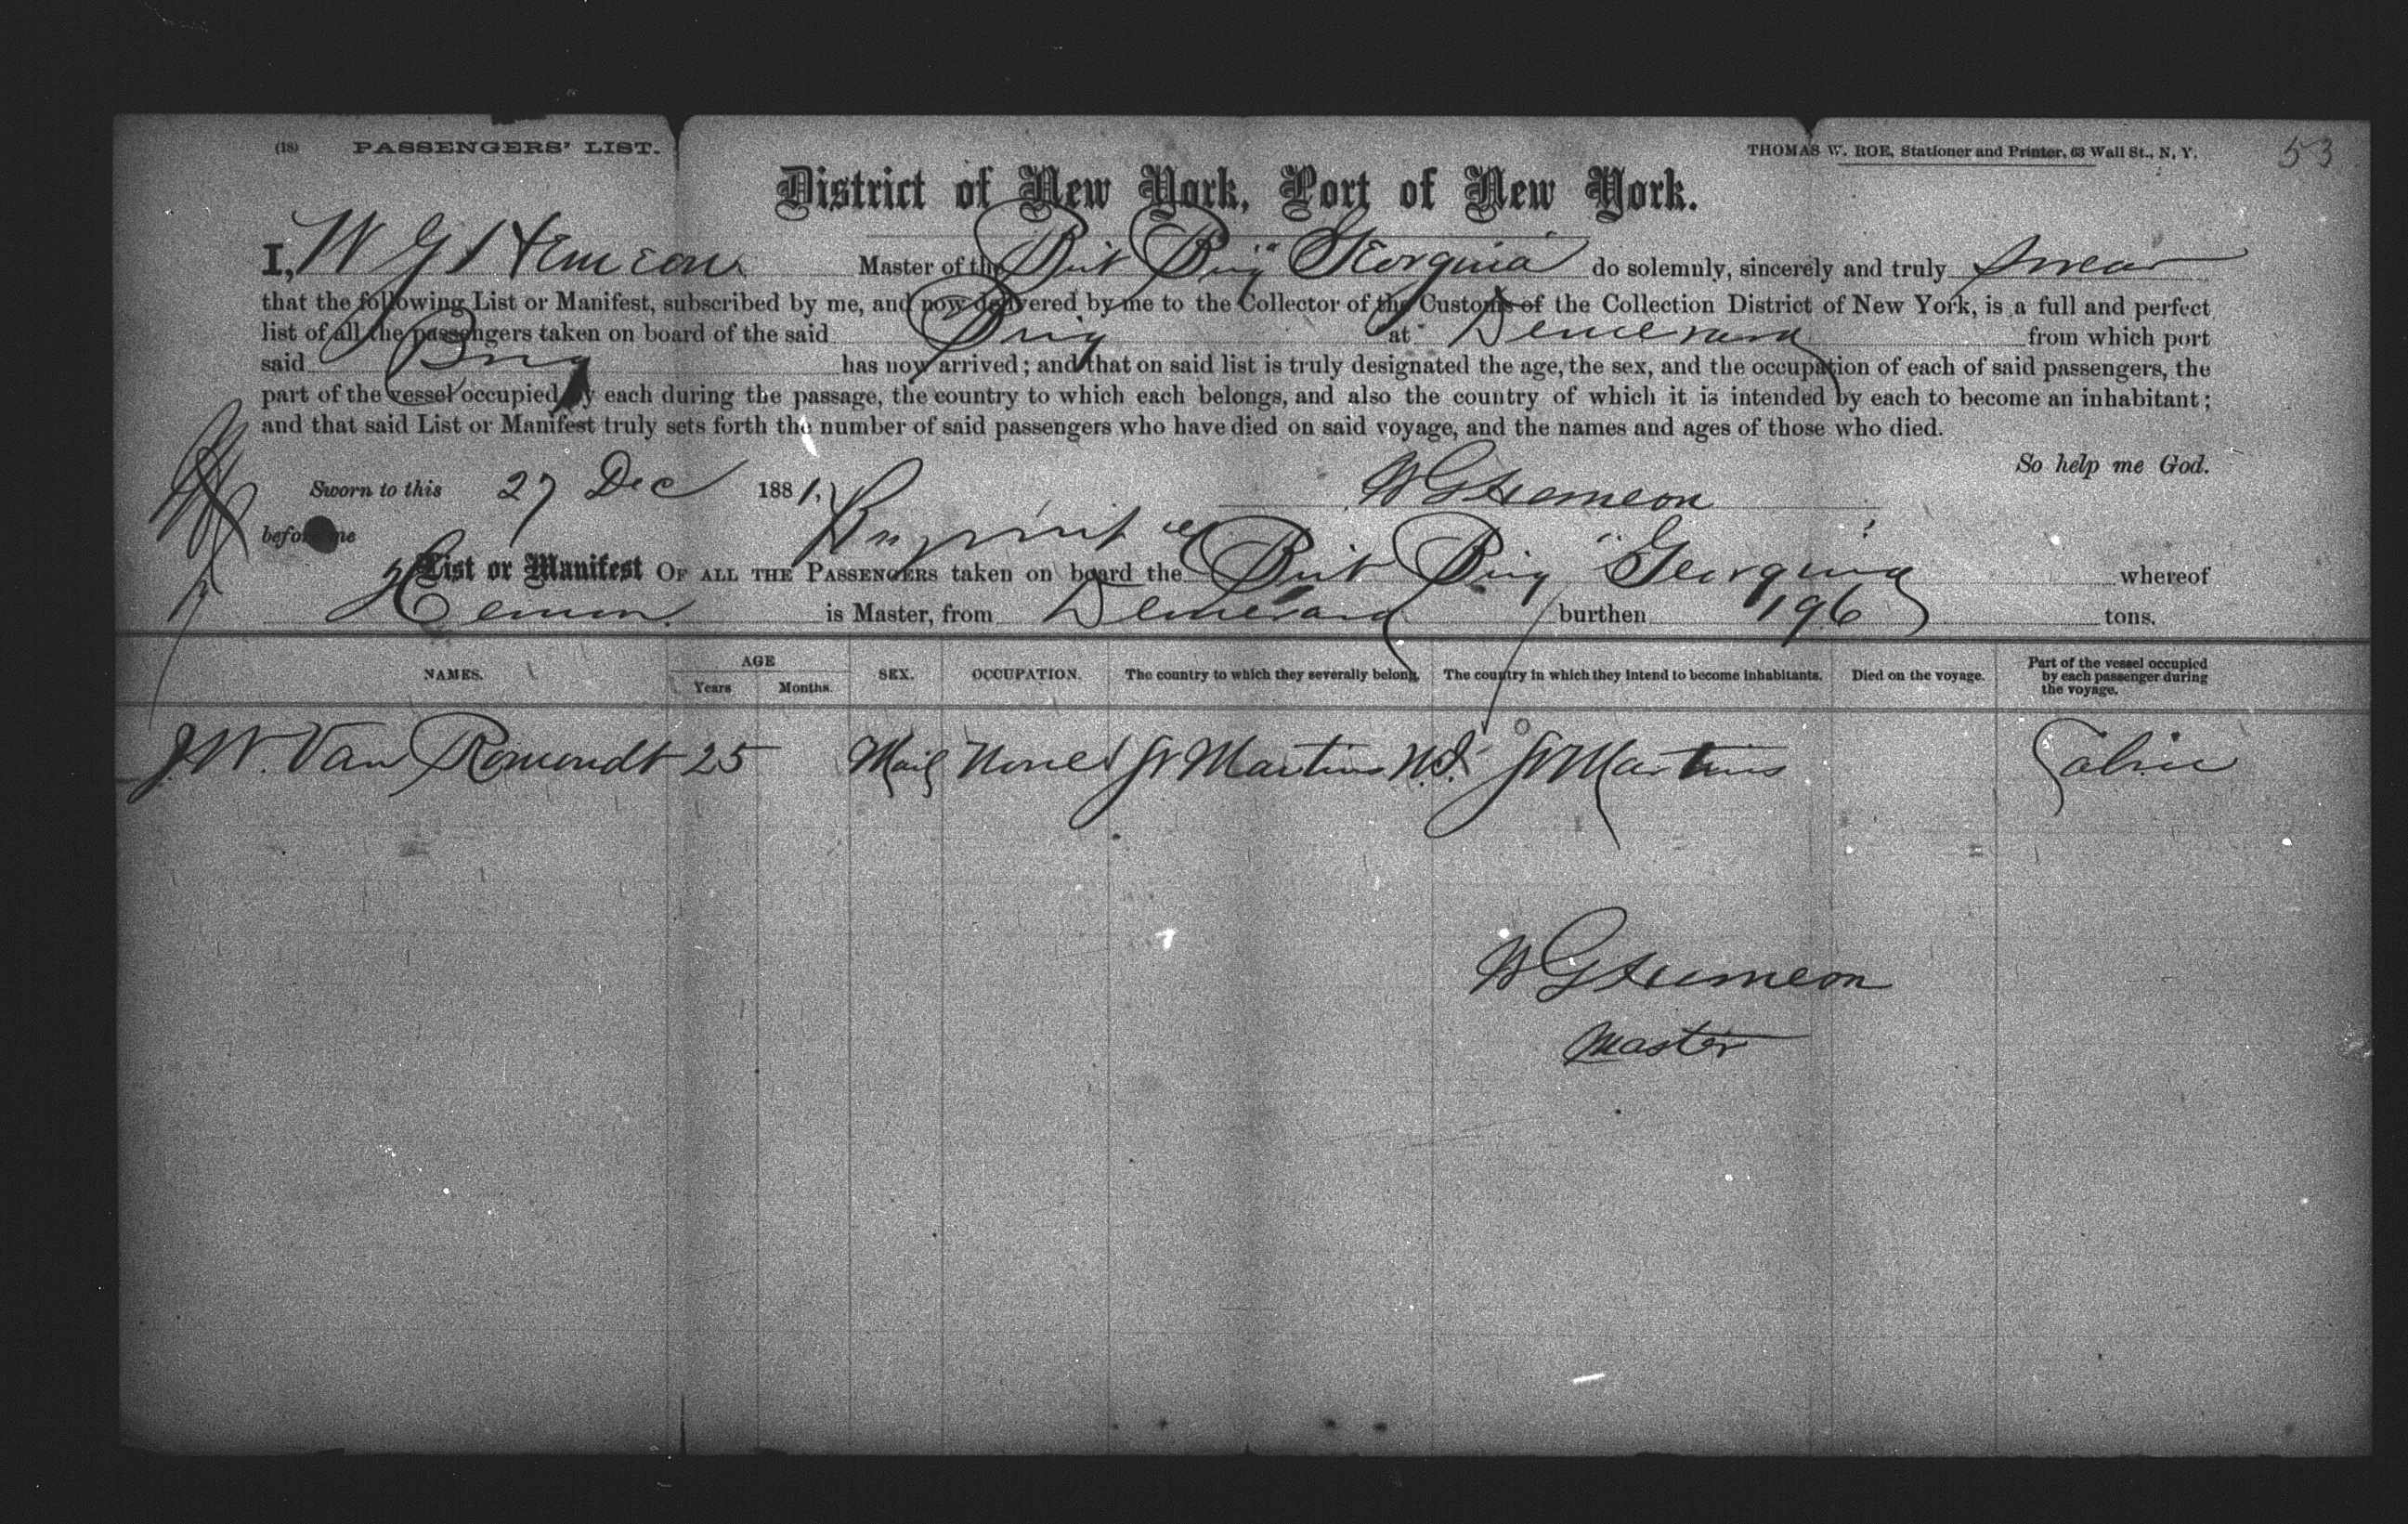 (18) PASSENGERS' LIST. THOMAS W. ROE, Stationer and Printer, 63 Wall St., N. Y. 53
District of New York, Port of New York.
I, W G Hemeon Master of the Brit Brig "Georgina" do solemnly, sincerely and truly swear
that the following List or Manifest, subscribed by me, and now delivered by me to the Collector of the Customs of the Collection District of New York, is a full and perfect
list of all the passengers taken on board of the said Brig at Demerara from which port
said Brig has now arrived; and that on said list is truly designated the age, the sex, and the occupation of each of said passengers, the
part of the vessel occupied by each during the passage, the country to which each belongs, and also the country of which it is intended by each to become an inhabitant;
and that said List or Manifest truly sets forth the number of said passengers who have died on said voyage, and the names and ages of those who died.
So help me God.
Sworn to this 27 Dec 1881. W G Hemeon
before me
List or Manifest OF ALL THE PASSENGERS taken on board the Brit Brig "Georgina" whereof
Hemeon is Master, from Demerara burthen 196 tons.
NAMES. AGE Years Months. SEX. OCCUPATION. The country to which they severally belong. The country in which they intend to become inhabitants. Died on the voyage. Part of the vessel occupied by each passenger during the voyage.
J. W. Van Romondt 25 Mail None St Martins W.I. St Martins Cabin
W G Hemeon
Master